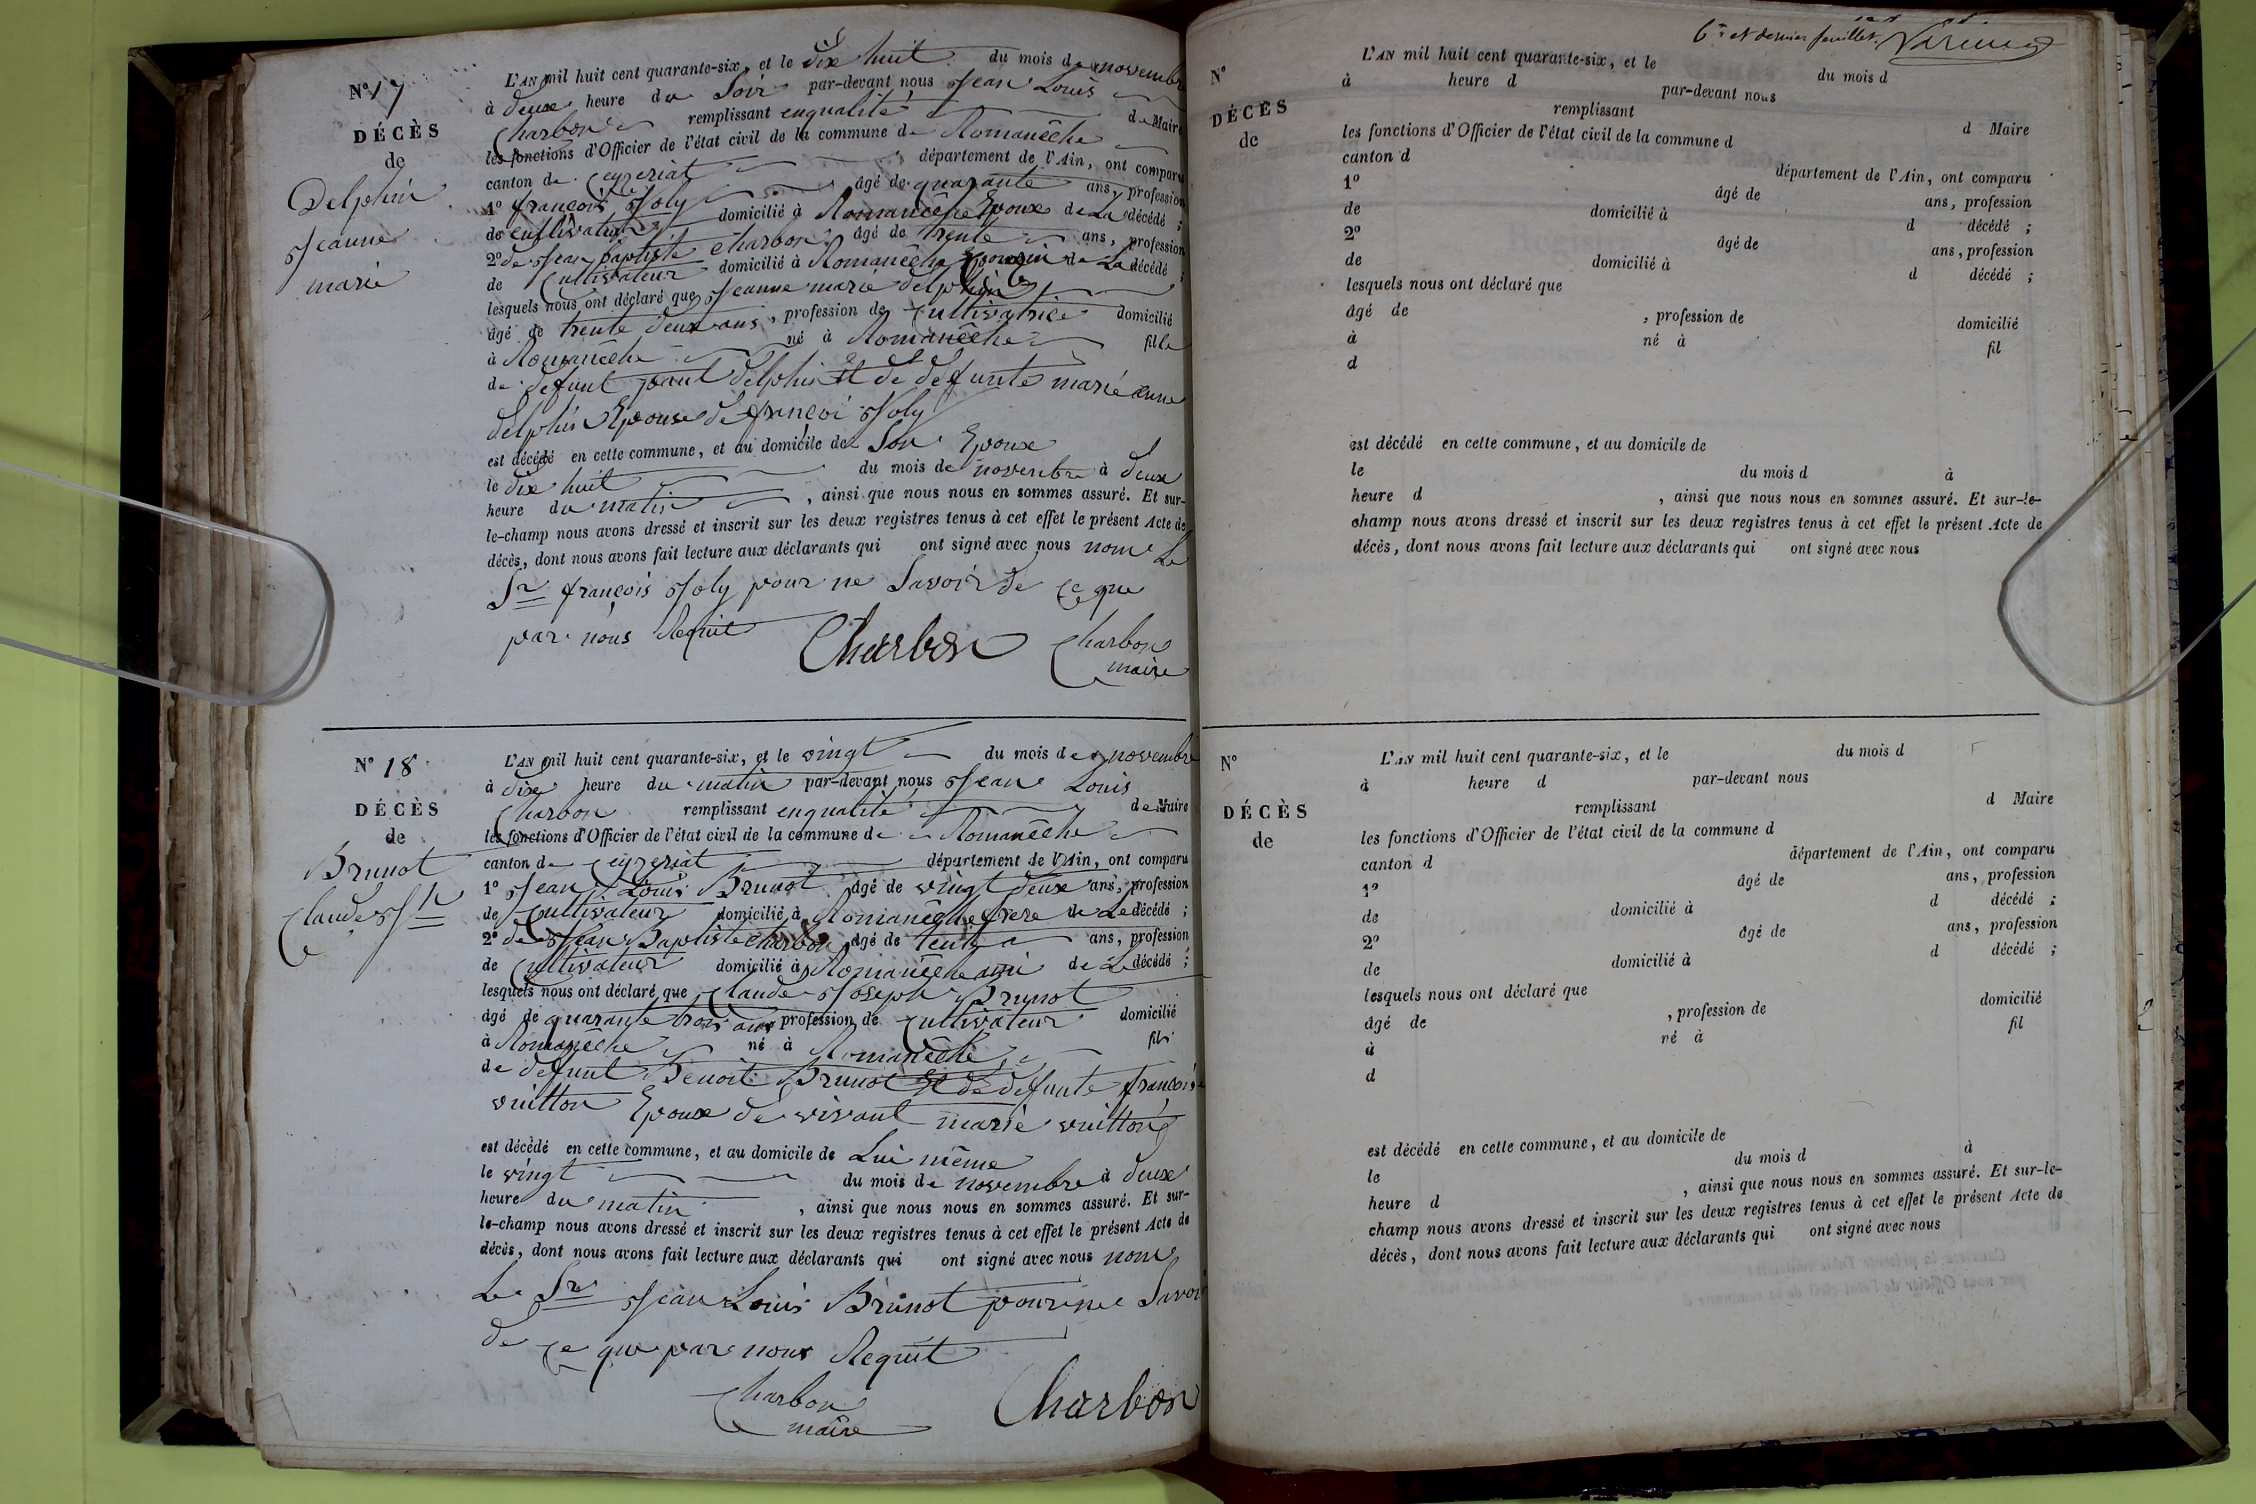 N° 17
DÉCÈS
de
Delphin
Jeanne
marie
L'AN mil huit cent quarante-six, et le dix huit du mois de novembre
à deux heure du Soir par-devant nous Jean Louis
Charbon remplissant enqualité de Maire
les fonctions d'Officier de l'état civil de la commune de Romanêche
canton de Ceyzeriat département de l'Ain, ont comparu
1° françois Joly âgé de quarante ans, profession
de cultivateur domicilié à Romanêche Epoux de La décédé ;
2° de Jean baptiste Charbon âgé de trente ans, profession
de Cultivateur domicilié à Romanêche de La décédé ;
lesquels nous ont déclaré que Jeanne marie delphin
âgé de trente deux ans, profession de Cultivatrice domicilié
à Romanêche né à Romanêche fille
de defunt paul delphin Et de defunte marie anne
delphin Epouse de françoi Joly
est décédé en cette commune, et au domicile de Son Epoux
le dix huit du mois de novembre à deux
heure du matin, ainsi que nous nous en sommes assuré. Et sur-
le-champ nous avons dressé et inscrit sur les deux registres tenus à cet effet le présent Acte de
décès, dont nous avons fait lecture aux déclarants qui ont signé avec nous nom Le
Sr françois Joly pour ne Savoir de Ce que
par nous Requit
Charbon Charbon
maire
N° 18
DÉCÈS
de
Brunot
Claude Jh
L'AN mil huit cent quarante-six, et le vingt du mois de novembre
à dix heure du matin par-devant nous Jean Louis
Charbon remplissant enqualité de Maire
les fonctions d'Officier de l'état civil de la commune de Romanêche
canton de Ceyzeriat département de l'Ain, ont comparu
1° Jean Louis Brunot âgé de vingt deux ans, profession
de Cultivateur domicilié à Romanêche frere de Le décédé ;
2° de Jean Baptiste Charbon âgé de ans, profession
de Cultivateur domicilié à Romanêche ami de Le décédé ;
lesquels nous ont déclaré que Claude Joseph Brunot
âgé de quarante trois ans profession de Cultivateur domicilié
à Romanêche né à Romanêche fils
de defunt Benoit Brunot Et de defunte françoise
vuitton Epoux de vivant marie vuitton
est décédé en cette commune, et au domicile de Lui même
le vingt du mois de novembre à deux
heure du matin, ainsi que nous nous en sommes assuré. Et sur-
le-champ nous avons dressé et inscrit sur les deux registres tenus à cet effet le présent Acte de
décès, dont nous avons fait lecture aux déclarants qui ont signé avec nous nom
Le Sr Jean Louis Brunot pour ne Savoir
de Ce que par nous Requit
Charbon Charbon
maire
6e et dernier feuillet.
N°
DÉCÈS
de
L'AN mil huit cent quarante-six, et le du mois d
à heure d par-devant nous
remplissant d Maire
les fonctions d'Officier de l'état civil de la commune d
canton d département de l'Ain, ont comparu
1° âgé de ans, profession
de domicilié à d décédé ;
2° âgé de ans, profession
de domicilié à d décédé ;
lesquels nous ont déclaré que
âgé de , profession de domicilié
à né à fil
d
est décédé en cette commune, et au domicile de
le du mois d à
heure d , ainsi que nous nous en sommes assuré. Et sur-le-
champ nous avons dressé et inscrit sur les deux registres tenus à cet effet le présent Acte de
décès, dont nous avons fait lecture aux déclarants qui ont signé avec nous
N°
DÉCÈS
de
L'AN mil huit cent quarante-six, et le du mois d
à heure d par-devant nous
remplissant d Maire
les fonctions d'Officier de l'état civil de la commune d
canton d département de l'Ain, ont comparu
1° âgé de ans, profession
de domicilié à d décédé ;
2° âgé de ans, profession
de domicilié à d décédé ;
lesquels nous ont déclaré que
âgé de , profession de domicilié
à né à fil
d
est décédé en cette commune, et au domicile de
le du mois d à
heure d , ainsi que nous nous en sommes assuré. Et sur-le-
champ nous avons dressé et inscrit sur les deux registres tenus à cet effet le présent Acte de
décès, dont nous avons fait lecture aux déclarants qui ont signé avec nous